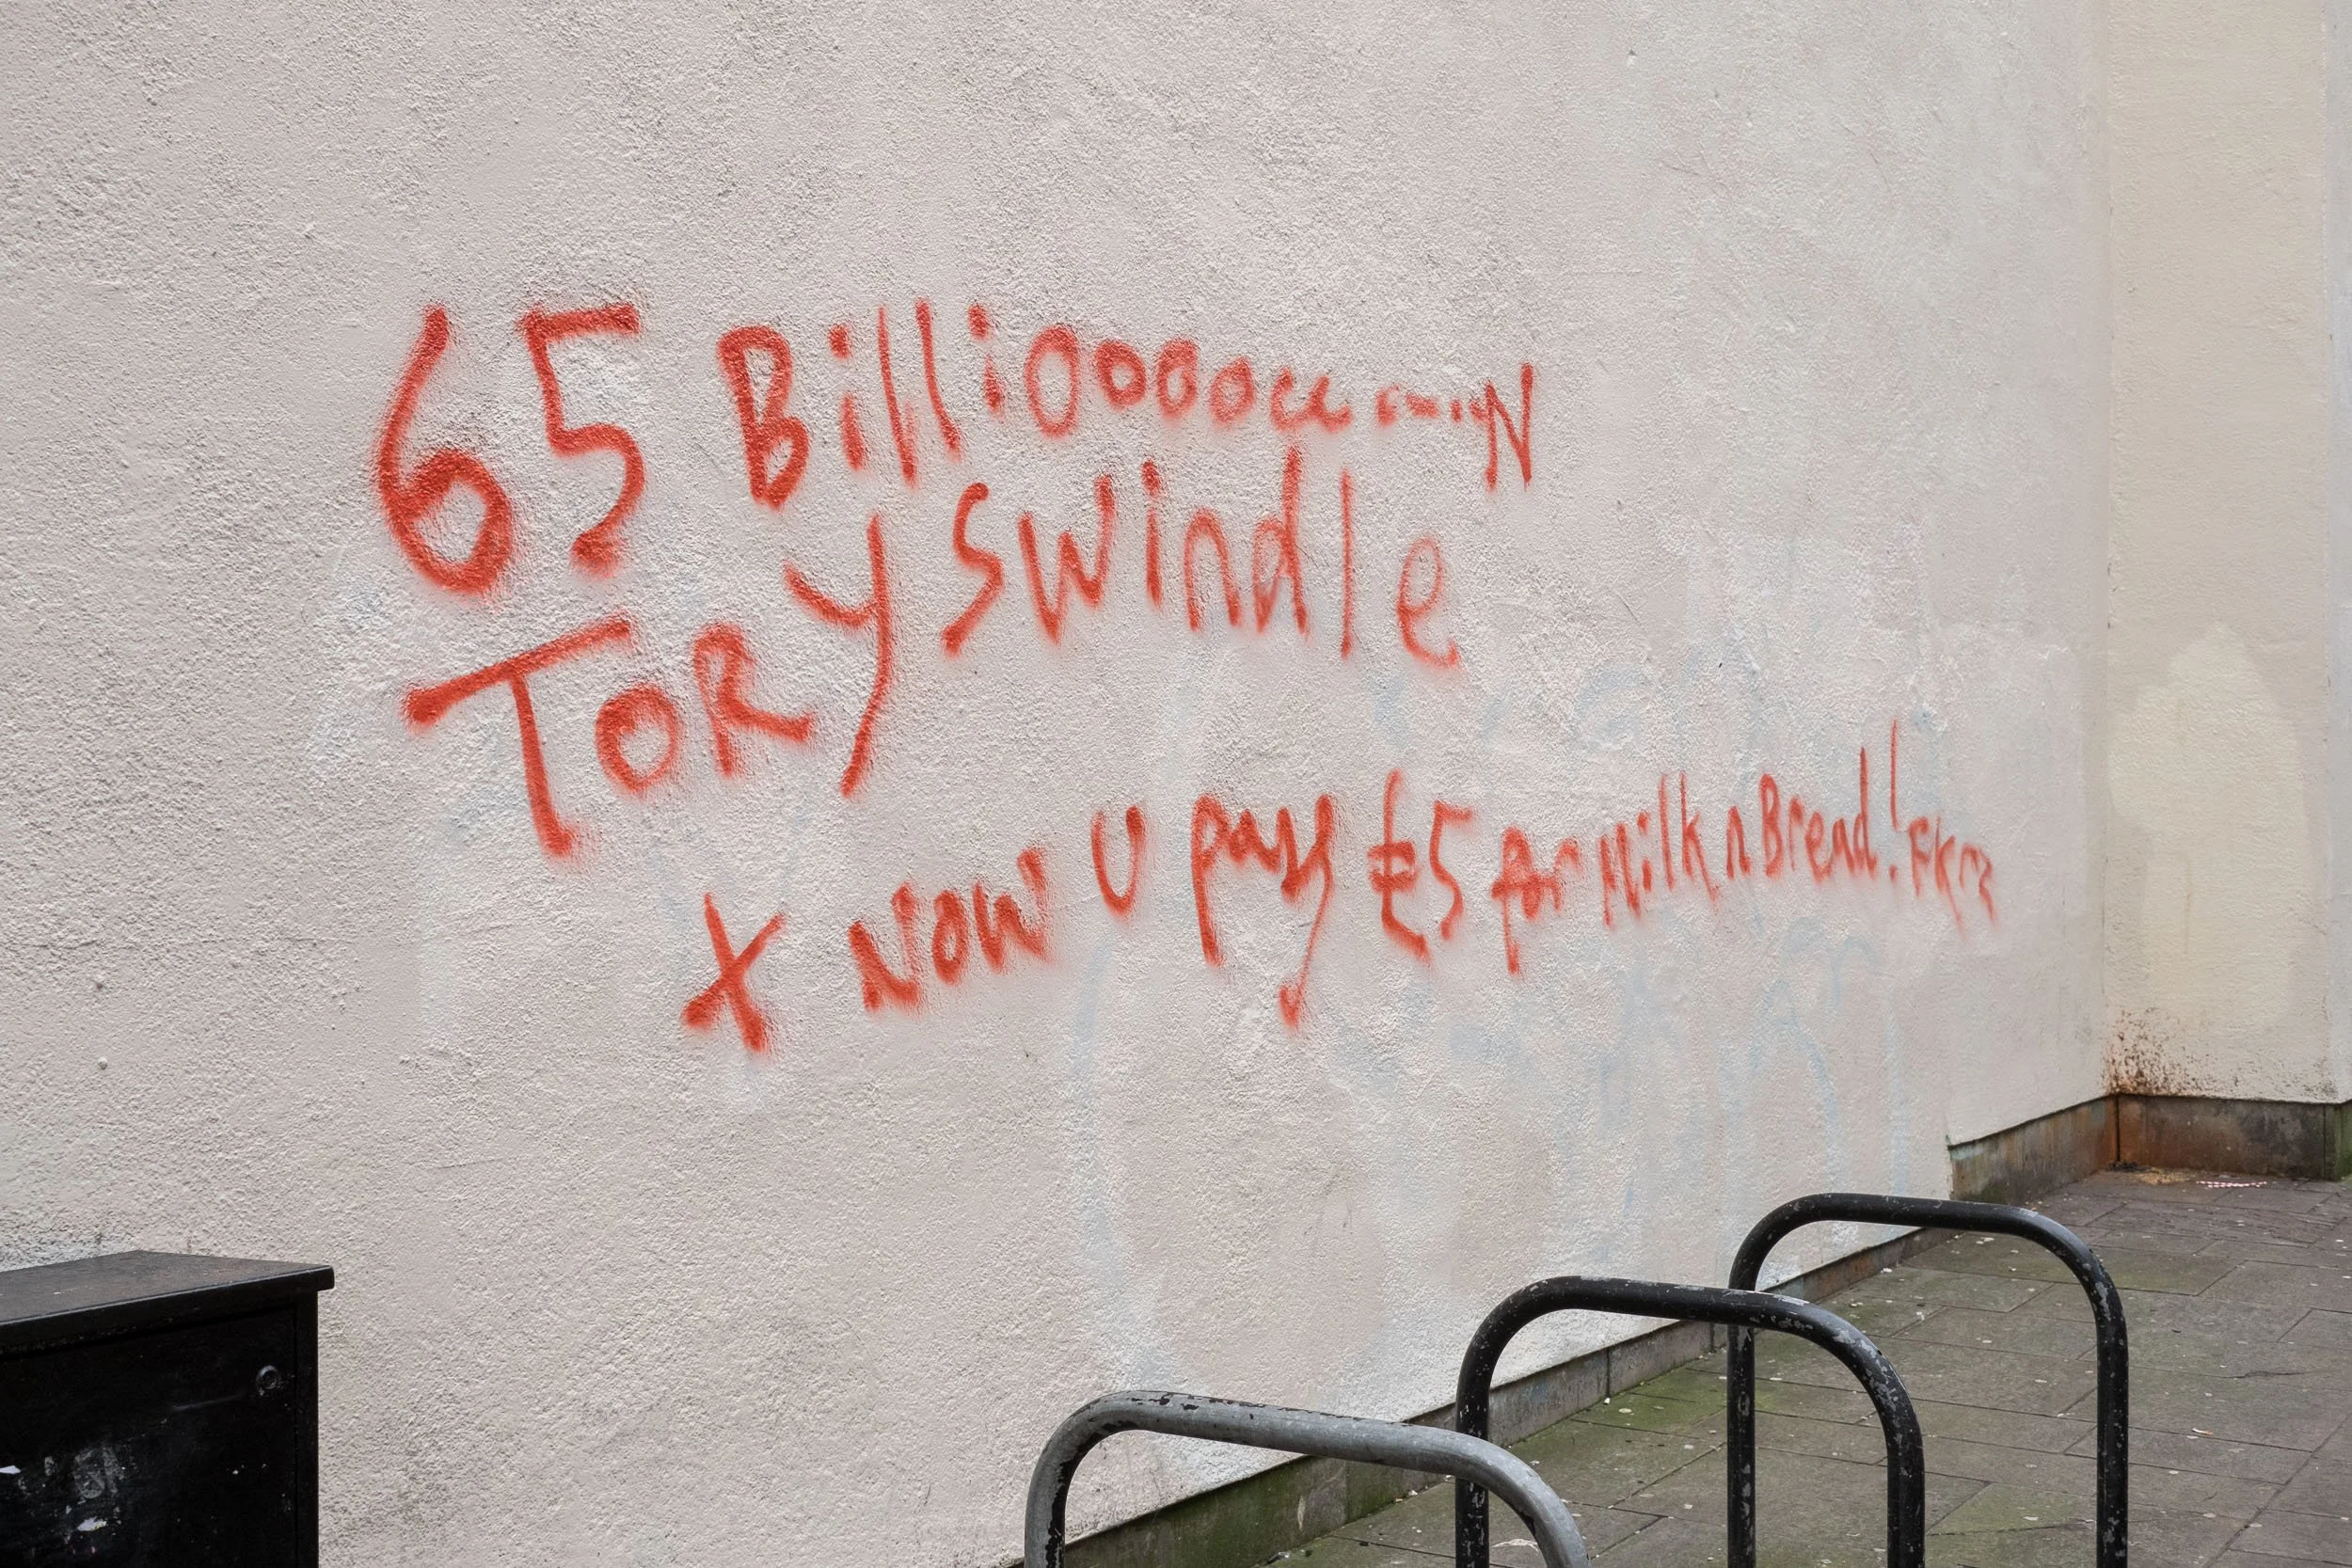 65 BillioooooN
TORY Swindle
+ NOW U pay £5 for Milk n Bread! FKrz